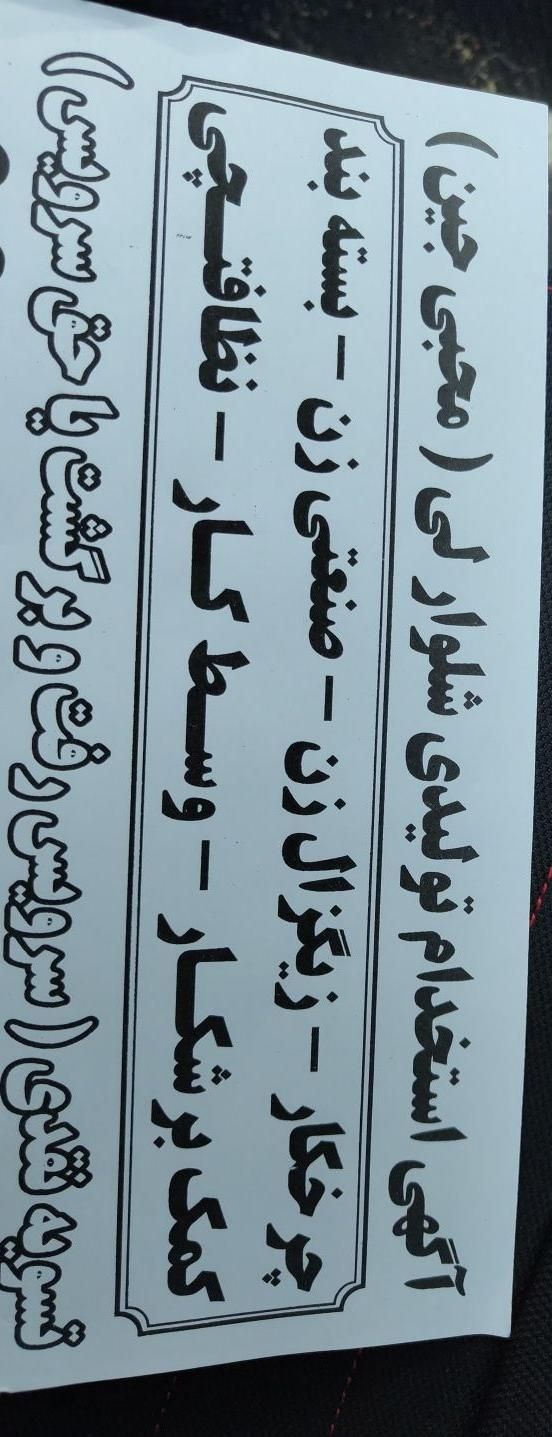 آگهی استخدام تولیدی شلوار لی ( محبی جین )
چرخکار – زیگزال زن – صنعتی زن – بسته بند
کمک برشکار – وسط کار – نظافتچی
تسویه نقدی ( سرویس رفت و برگشت یا حق سرویس )